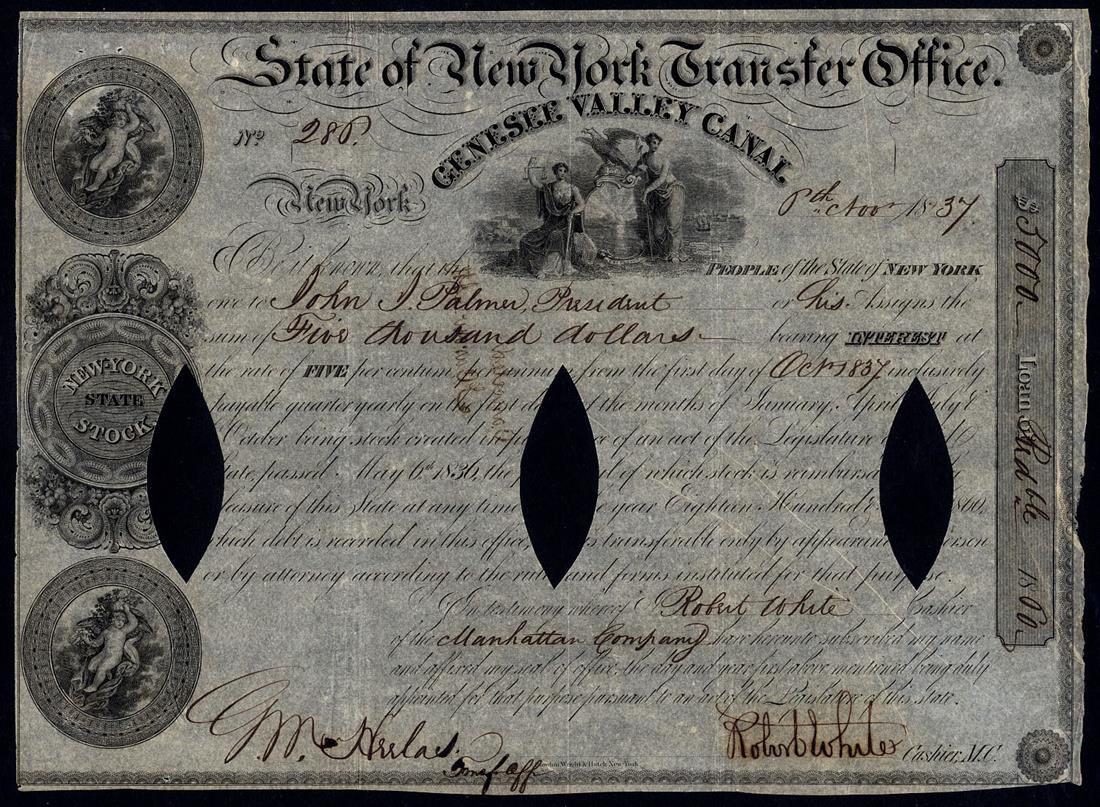 State of New York Transfer Office.
GENESEE VALLEY CANAL
No 280.
New York
8th Nov 1837.
Be it known, that the PEOPLE of the State of NEW YORK
owe to John J. Palmer, President or his Assigns the
sum of Five thousand dollars bearing INTEREST at
the rate of FIVE per centum per annum from the first day of Oct 1837 inclusively
payable quarter yearly on the first day of the months of January, April, July &
October being stock created in of an act of the Legislature
passed May 6th 1836, the of which stock is
of this State at any time year Eighteen Hundred & 1860,
which debt is recorded in this office, is transferable only by
or by attorney according to the rules and forms instituted for that purpose.
In testimony whereof I Robert White Cashier
of the Manhattan Company have hereunto subscribed my name
and affixed my seal of office, the day and year first above mentioned being duly
appointed for that purpose pursuant to an act of the Legislature of this State.
Robert White Cashier, M.C.
Transf Off
NEW-YORK
STATE
STOCK
$5000 Loan 1860